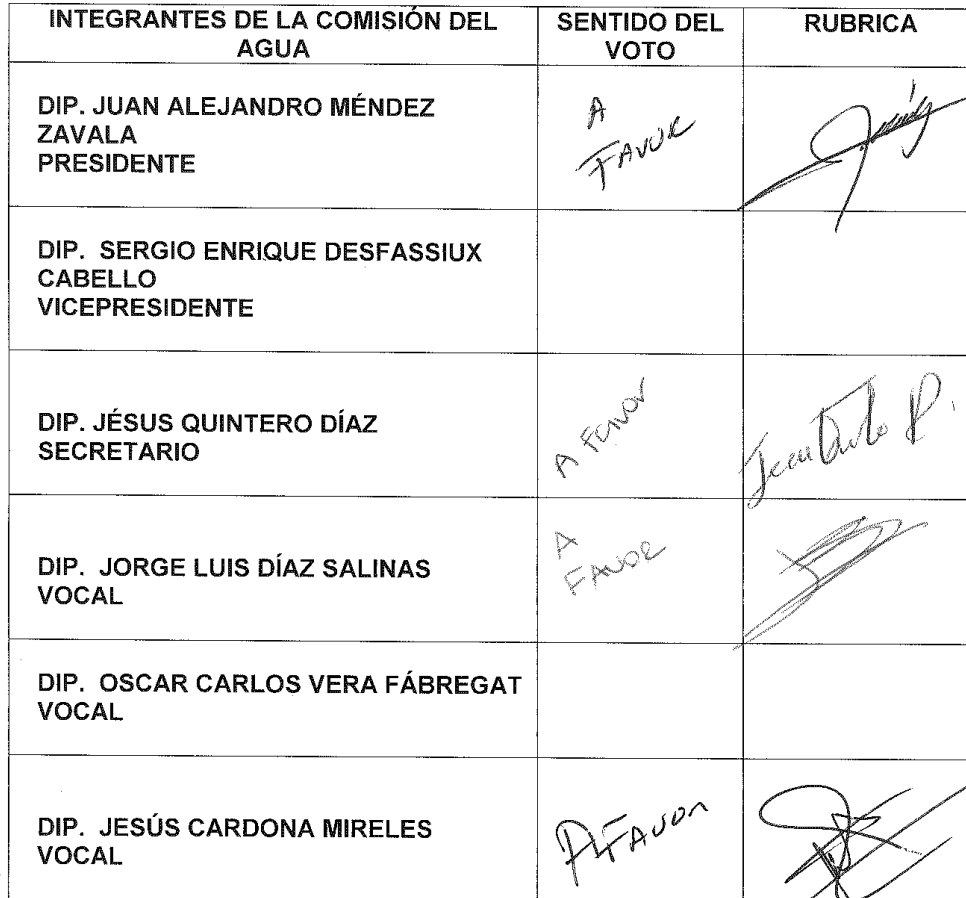 INTEGRANTES DE LA COMISIÓN DEL
AGUA
SENTIDO DEL
VOTO
RUBRICA
DIP. JUAN ALEJANDRO MÉNDEZ
ZAVALA
PRESIDENTE
A
FAVOR
DIP. SERGIO ENRIQUE DESFASSIUX
CABELLO
VICEPRESIDENTE
DIP. JÉSUS QUINTERO DÍAZ
SECRETARIO
A Favor
DIP. JORGE LUIS DÍAZ SALINAS
VOCAL
A
FAVOR
DIP. OSCAR CARLOS VERA FÁBREGAT
VOCAL
DIP. JESÚS CARDONA MIRELES
VOCAL
A FAVOR